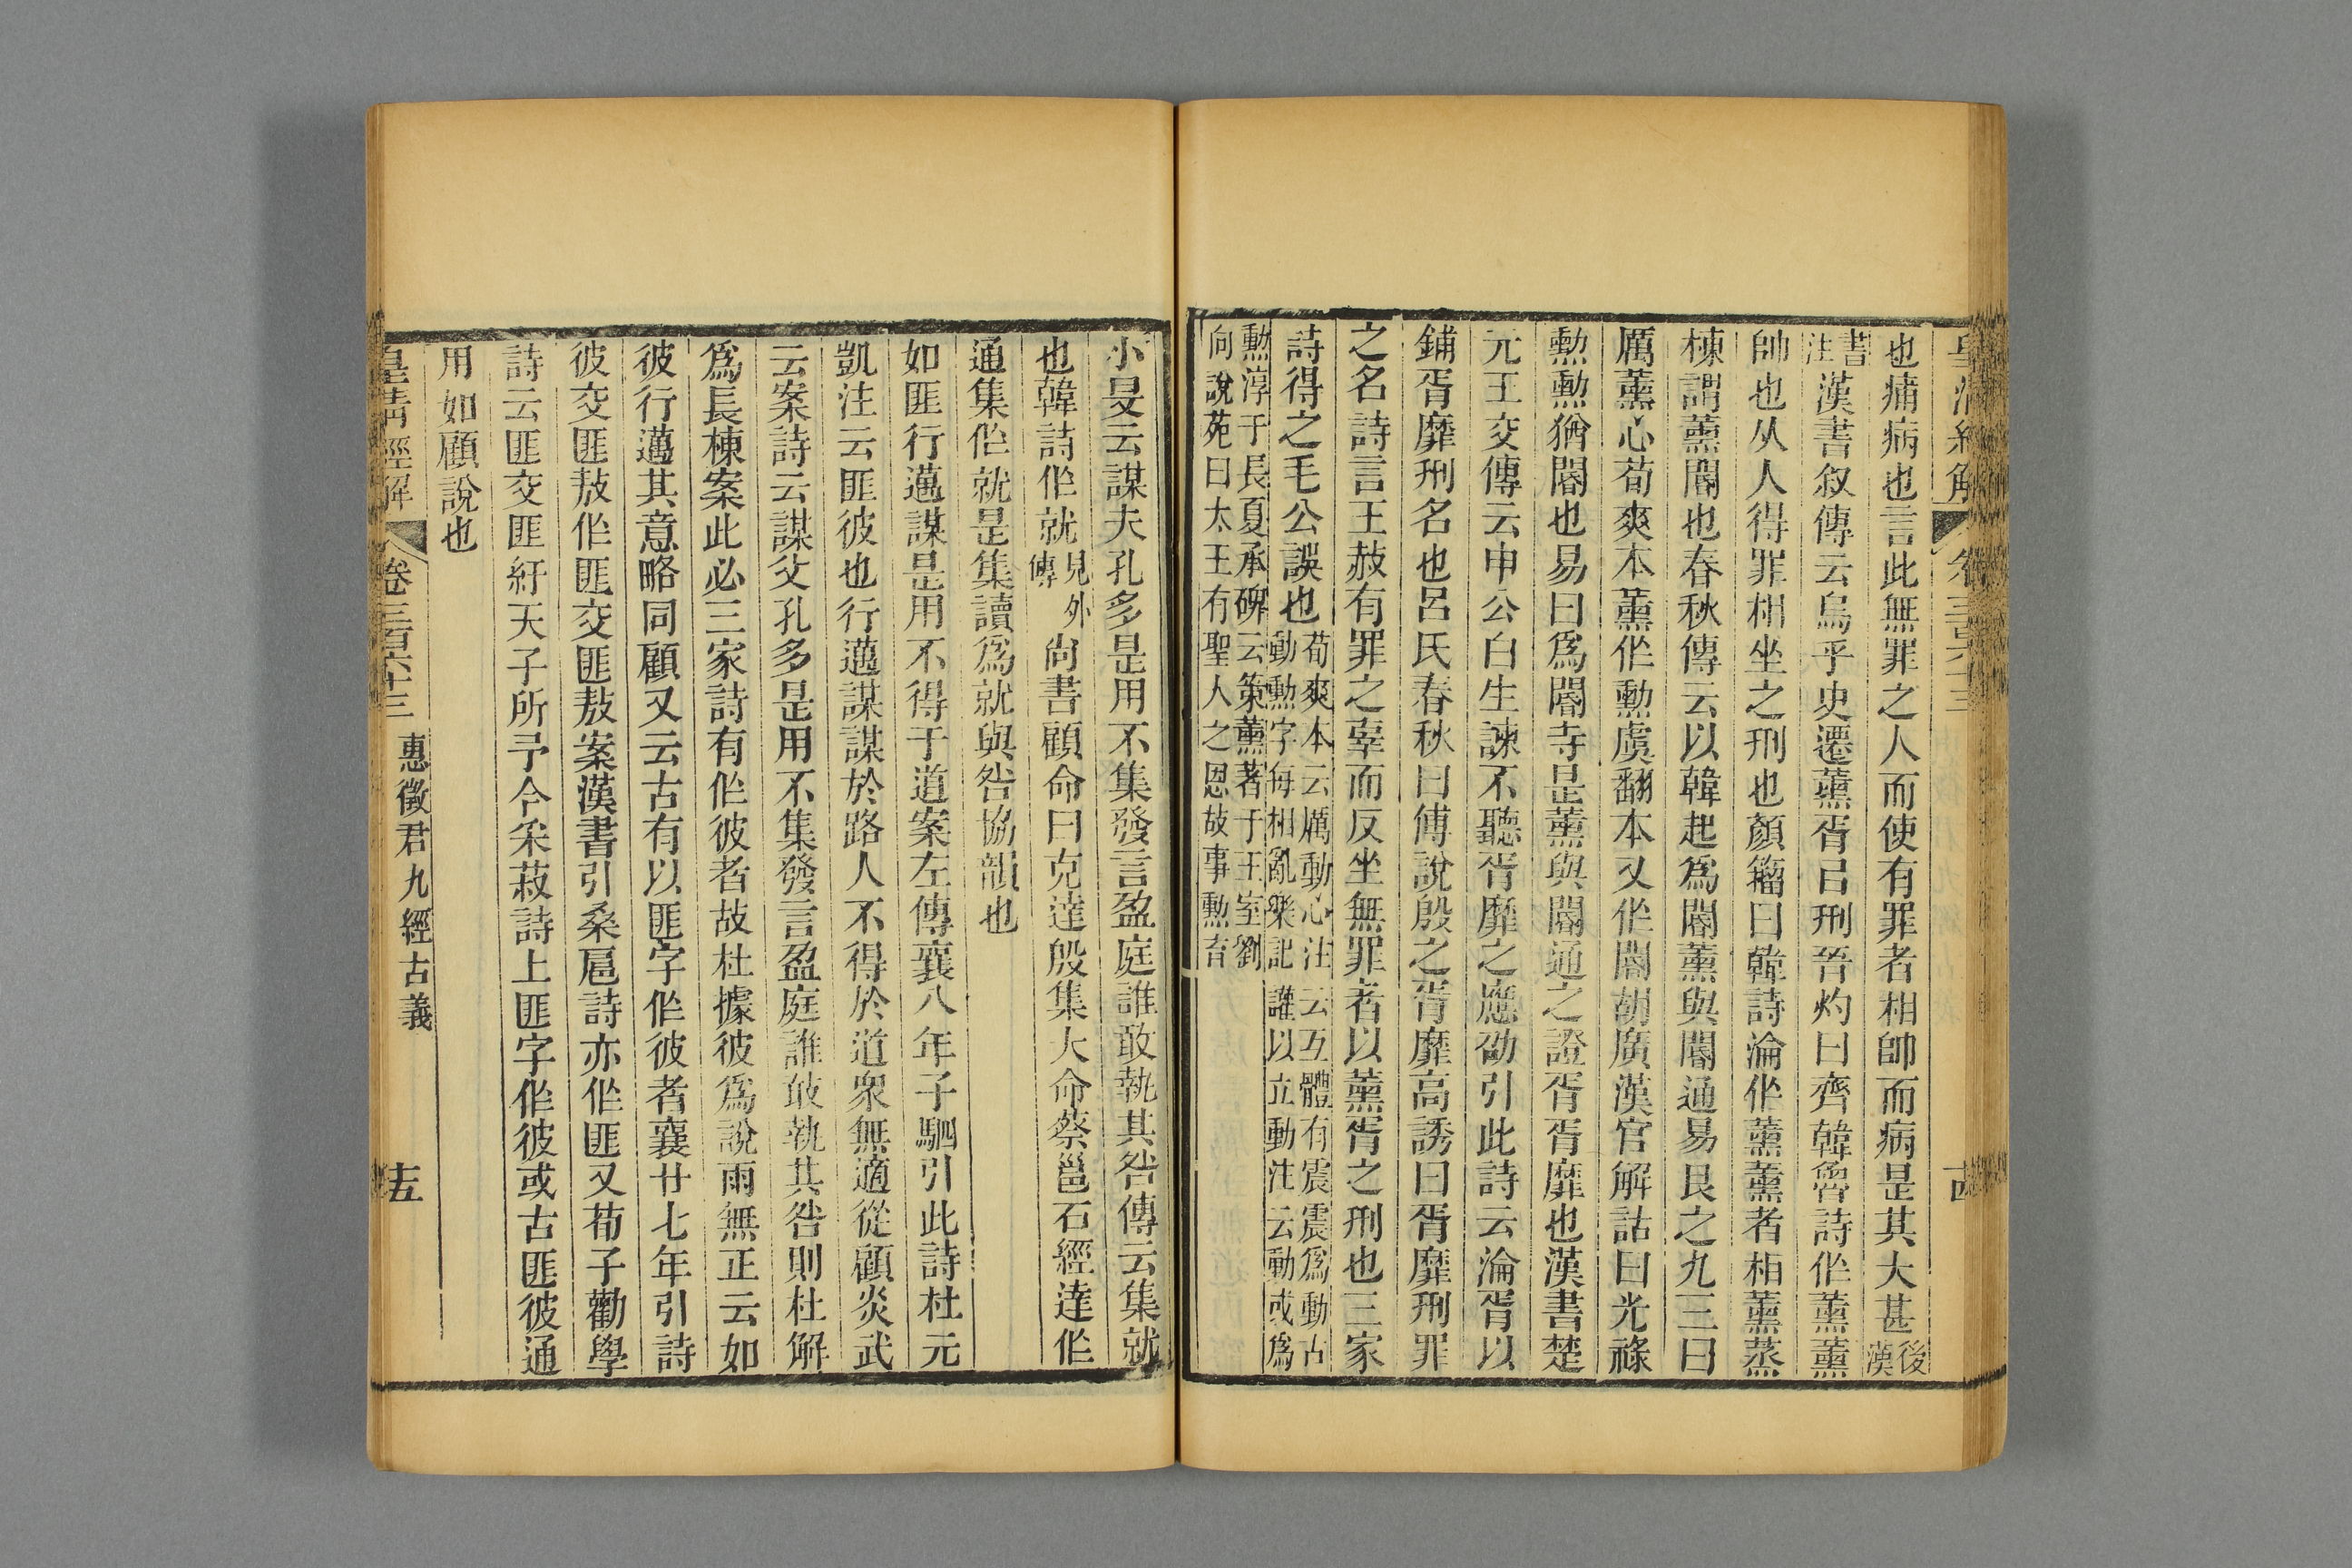 皇清經解 卷三百六十三 十四
也痡病也言此無罪之人而使有罪者相帥而病是其大甚後漢
書注漢書叙傳云烏乎史遷薰胥㠯刑晉灼曰齊韓魯詩作薰薰
帥也从人得罪相坐之刑也顏籀曰韓詩淪作薰薰者相薰蒸
棟謂薰閽也春秋傳云以韓起爲閽薰與閽通易艮之九三曰
厲薰心荀爽本薰作勳虞翻本又作閽胡廣漢官解詁曰光祿
勳勳猶閽也易曰爲閽寺是薰與閽通之證胥胥靡也漢書楚
元王交傳云申公白生諫不聽胥靡之應劭引此詩云淪胥以
鋪胥靡刑名也呂氏春秋曰傅說殷之胥靡高誘曰胥靡刑罪
之名詩言王赦有罪之辠而反坐無罪者以薰胥之刑也三家
詩得之毛公誤也荀爽本云厲動心注云互體有震震爲動古
動勳字每相亂樂記讙以立動注云動或爲
勳淳于長夏承碑云策薰著于王室劉
向說苑曰太王有聖人之恩故事勳育
小旻云謀夫孔多是用不集發言盈庭誰敢執其咎傳云集就
也韓詩作就見外傳尙書顧命曰克達殷集大命蔡邕石經達作
通集作就是集讀爲就與咎協韻也
如匪行邁謀是用不得于道案左傳襄八年子駟引此詩杜元
凱注云匪彼也行邁謀謀於路人不得於道衆無適從顧炎武
云案詩云謀父孔多是用不集發言盈庭誰敢執其咎則杜解
爲長棟案此必三家詩有作彼者故杜據彼爲說雨無正云如
彼行邁其意略同顧又云古有以匪字作彼者襄廿七年引詩
彼交匪敖作匪交匪敖案漢書引桑扈詩亦作匪又荀子勸學
詩云匪交匪紓天子所予今采菽詩上匪字作彼或古匪彼通
用如顧說也
皇清經解 卷三百六十三 惠徵君九經古義 十五